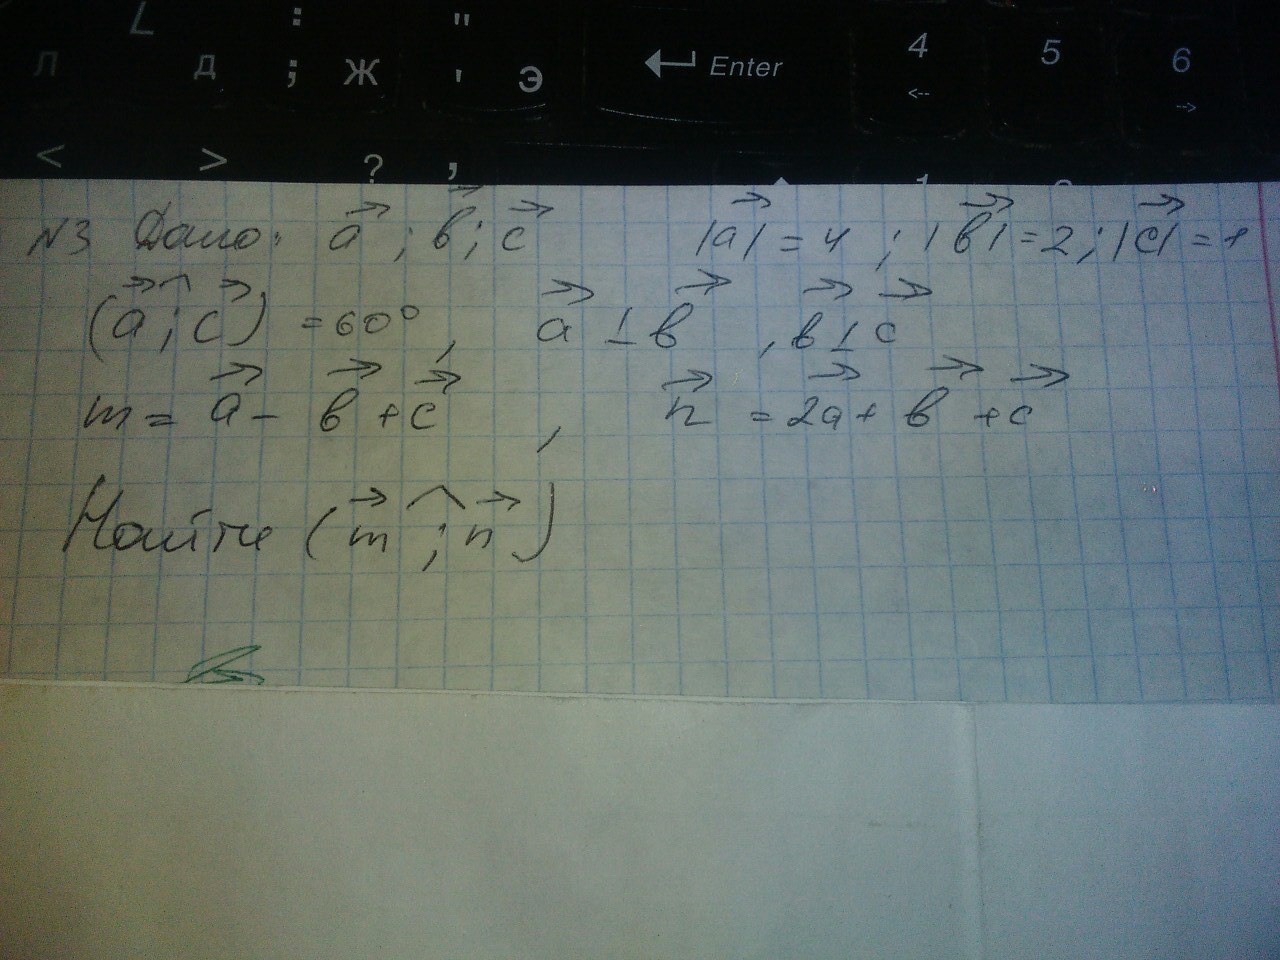 L : "
Л Д ; Ж ' Э Enter 4 5 6
<-- -->
< > ? ,
N3 Дано: a⃗ ; в⃗ ; c⃗ |a⃗| = 4 ; |в⃗| = 2 ; |c⃗| = 1
(a⃗ ^; c⃗) = 60° , a⃗ ⊥ в⃗ , в⃗ ⊥ c⃗
m = a⃗ - в⃗ + c⃗ , n⃗ = 2a⃗ + в⃗ + c⃗
Найти (m⃗ ^; n⃗)